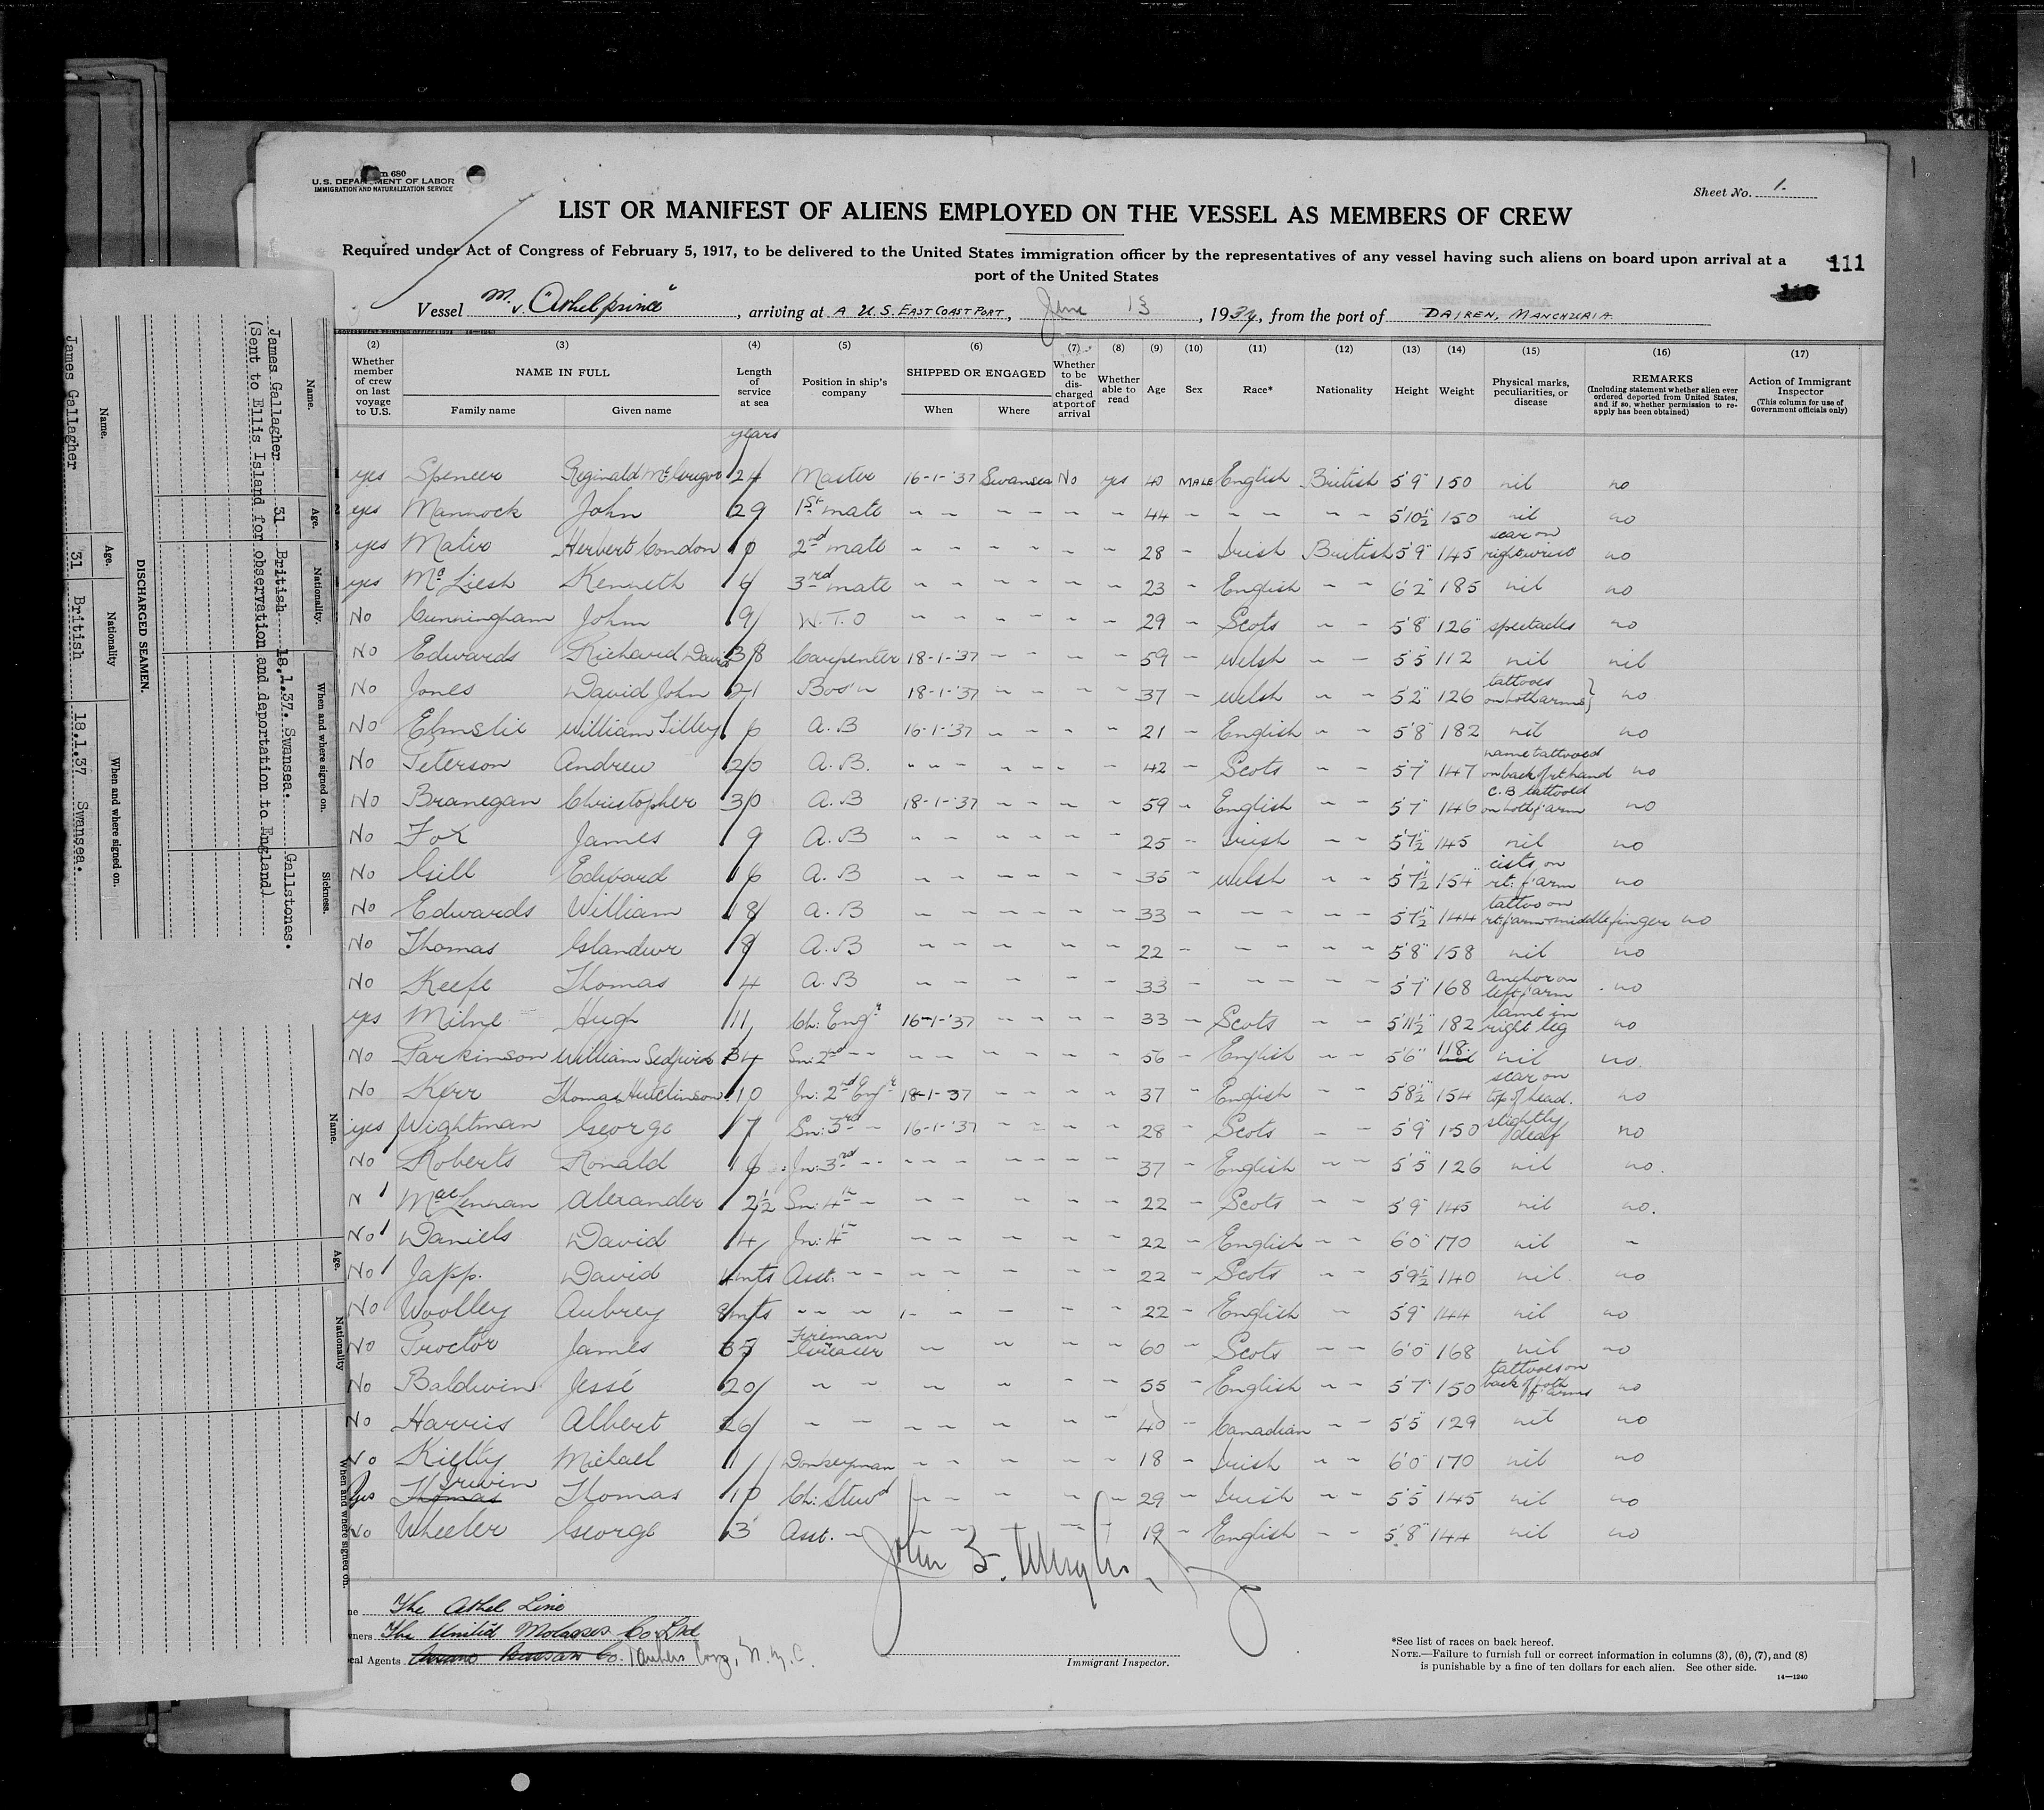 Form 680
U.S. DEPARTMENT OF LABOR
IMMIGRATION AND NATURALIZATION SERVICE
Sheet No. 1.
LIST OR MANIFEST OF ALIENS EMPLOYED ON THE VESSEL AS MEMBERS OF CREW
Required under Act of Congress of February 5, 1917, to be delivered to the United States immigration officer by the representatives of any vessel having such aliens on board upon arrival at a
port of the United States
111
110
Vessel M.V. "Athelprince", arriving at A U.S. EAST COAST PORT, June 13, 1937, from the port of DAIREN, MANCHURIA
(2) (3) (4) (5) (6) (7) (8) (9) (10) (11) (12) (13) (14) (15) (16) (17)
Whether member of crew on last voyage to U.S. NAME IN FULL Family name Given name Length of service at sea Position in ship's company SHIPPED OR ENGAGED When Where Whether to be discharged at port of arrival Whether able to read Age Sex Race* Nationality Height Weight Physical marks, peculiarities, or disease REMARKS (Including statement whether alien ever ordered deported from United States, and if so, whether permission to reapply has been obtained) Action of Immigrant Inspector (This column for use of Government officials only)
years
yes Spencer Reginald McGregor 24 Master 16-1-'37 Swansea No yes 40 MALE English British 5'9" 150 nil no
yes Mannock John 29 1st mate - - - - - - 44 - - - - - - 5'10½ 150 nil no
yes Herbert Condon 10 2nd mate - - - - - - 28 - Irish British 5'9" 145 scar on right wrist no
yes Kenneth 6 3rd mate - - - - - - 23 - English - - 6'2" 185 nil no
No Cunningham John 9 W.T.O - - - - - - 29 - Scots - - 5'8" 126 spectacles no
No Edwards Richard David 38 Carpenter 18-1-'37 - - - - 59 - Welsh - - 5'5" 112 nil nil
No Jones David John 21 Bos'n 18-1-'37 - - - - 37 - Welsh - - 5'2" 126 tattoes on both arms } no
No Elmslie William Tilley 6 A.B 16-1-'37 - - - - 21 - English - - 5'8" 182 nil no
No Peterson Andrew 20 A.B. - - - - - - - 42 - Scots - - 5'7" 147 name tattooed on back of rt hand no
No Branegan Christopher 30 A.B 18-1-'37 - - - - 59 - English - - 5'7" 146 C.B tattooed on both f'arm no
No Fox James 9 A.B - - - - - - 25 - Irish - - 5'7½" 145 nil no
No Gill Edward 16 A.B - - - - - - 35 - Welsh - - 5'7½" 154 cists on rt: f'arm no
No Edwards William 18 A.B - - - - - - 33 - - - - - - 5'7½" 144 tattoo on rt: f'arm & middle finger no
No Thomas Glandwr 8 A.B - - - - - - 22 - - - - - - 5'8" 158 nil no
No Keefe Thomas 4 A.B - - - - - - 33 - - - - - - 5'7" 168 anchor on left f'arm no
yes Milne Hugh 11 Ch: Engr 16-1-'37 - - - - 33 - Scots - - 5'11½" 182 lame in right leg no
No Parkinson William 34 Sn: 2nd - - - - - - - - 56 - English - - 5'6" 118 nil no.
No Kerr Thomas Hutchinson 10 Jn: 2nd Engr 18-1-37 - - - - 37 - English - - 5'8½" 154 scar on top of head. no
yes Wightman George 7 Sn: 3rd - 16-1-'37 - - - - 28 - Scots - - 5'9" 150 slightly deaf no
No Roberts Ronald 16 Jn: 3rd - - - - - - - - 37 - English - - 5'5" 126 nil no.
N MacLennan Alexander 2½ Sn: 4th - - - - - - - 22 - Scots - - 5'9" 145 nil no.
No Daniels David 4 Jn: 4th - - - - - - 22 - English - - 6'0" 170 nil -
No Japp. David 4mts Asst. - - - - - - - - 22 - Scots - - 5'9½ 140 nil no
No Woolley Aubrey 8mts - - - - - - - - 22 - English - 5'9" 144 nil no
No Proctor James 35 Fireman Greaser - - - - 60 - Scots - - 6'0" 168 nil no
No Baldwin Jessé 20 - - - - - - 55 - English - - 5'7" 150 tattooes on back of both f'arms no
No Harris Albert 26 - - - - - - 40 - Canadian - - 5'5" 129 nil no
No Kielty Michael 1 Donkeyman - - - - - - 18 - Irish - - 6'0" 170 nil no
Yes Thomas Irwin Thomas 10 Ch: Stewd - - - - - 29 - Irish - - 5'5" 145 nil no
No Wheeler George 3 Asst. - - - - - - 19 - English - - 5'8" 144 nil no
The Athel Line
Owners The United Molasses Co Ltd
Local Agents Tankers Corp, N.Y.C.
Immigrant Inspector.
*See list of races on back hereof.
NOTE.—Failure to furnish full or correct information in columns (3), (6), (7), and (8)
is punishable by a fine of ten dollars for each alien. See other side.
14—1240
Name. Age. Nationality. When and where signed on. Sickness.
James Gallagher 31 British 18.1.37. Swansea. Gallstones.
(Sent to Ellis Island for observation and deportation to England)
DISCHARGED SEAMEN.
Name. Age. Nationality When and where signed on.
James Gallagher 31 British 18.1.37 Swansea.
Name. Age. Nationality When and where signed on.